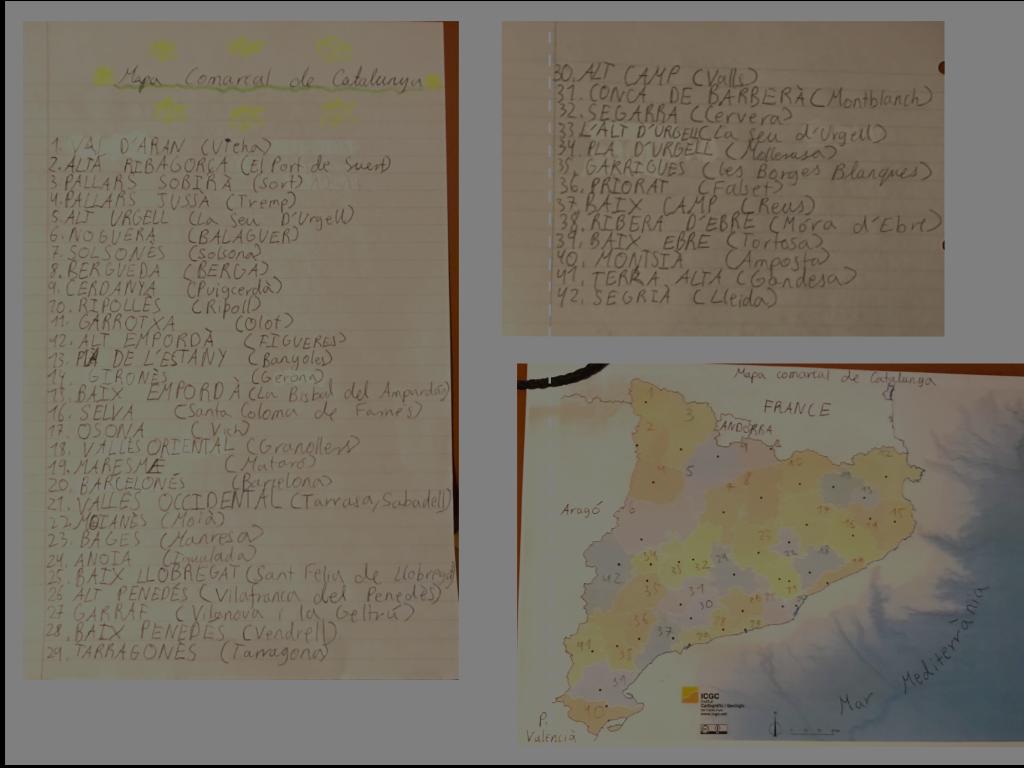 Mapa Comarcal de Catalunya
1. VAL D'ARAN (Vieha)
2. ALTA RIBAGORÇA (El Pont de Suert)
3 PALLARS SOBIRÀ (Sort)
4. PALLARS JUSSA (Tremp)
5. ALT URGELL (La Seu D'Urgell)
6. NOGUERA (BALAGUER)
7. SOLSONÈS (Solsona)
8. BERGUEDA (BERGA)
9. CERDANYA (Puigcerdà)
10. RIPOLLÈS (Ripoll)
11. GARROTXA (Olot)
12. ALT EMPORDÀ (FIGUERES)
13. PLÀ DE L'ESTANY (Banyoles)
14. GIRONÈS (Gerona)
15. BAIX EMPORDÀ (La Bisbal del Ampardós)
16. SELVA (Santa Coloma de Farnés)
17. OSONA (Vich)
18. VALLÈS ORIENTAL (Granollers)
19. MARESME (Mataró)
20. BARCELONÉS (Barcelona)
21. VALLÈS OCCIDENTAL (Tarrasa, Sabadell)
22. MOIANÈS (Moià)
23. BAGES (Manresa)
24. ANOIA (Igualada)
25. BAIX LLOBREGAT (Sant Feliu de Llobregat)
26 ALT PENEDÈS (Vilafranca del Penedès)
27 GARRAF (Vilanova i la Geltrú)
28. BAIX PENEDÈS (Vendrell)
29. TARRAGONÈS (Tarragona)
30. ALT CAMP (Valls)
31. CONCA DE BARBERÀ (Montblanch)
32. SEGARRA (Cervera)
33 L'ALT D'URGELL (La Seu d'Urgell)
34. PLA D'URGELL (Mollerusa)
35. GARRIGUES (les Borges Blanques)
36. PRIORAT (Falset)
37. BAIX CAMP (Reus)
38. RIBERA D'EBRE (Móra d'Ebre)
39. BAIX EBRE (Tortosa)
40. MONTSIÀ (Amposta)
41. TERRA ALTA (Gandesa)
42. SEGRIÀ (Lleida)
Mapa comarcal de Catalunya
FRANCE
ANDORRA
Aragó
Mar Mediterrània
P. Valencià
ICGC